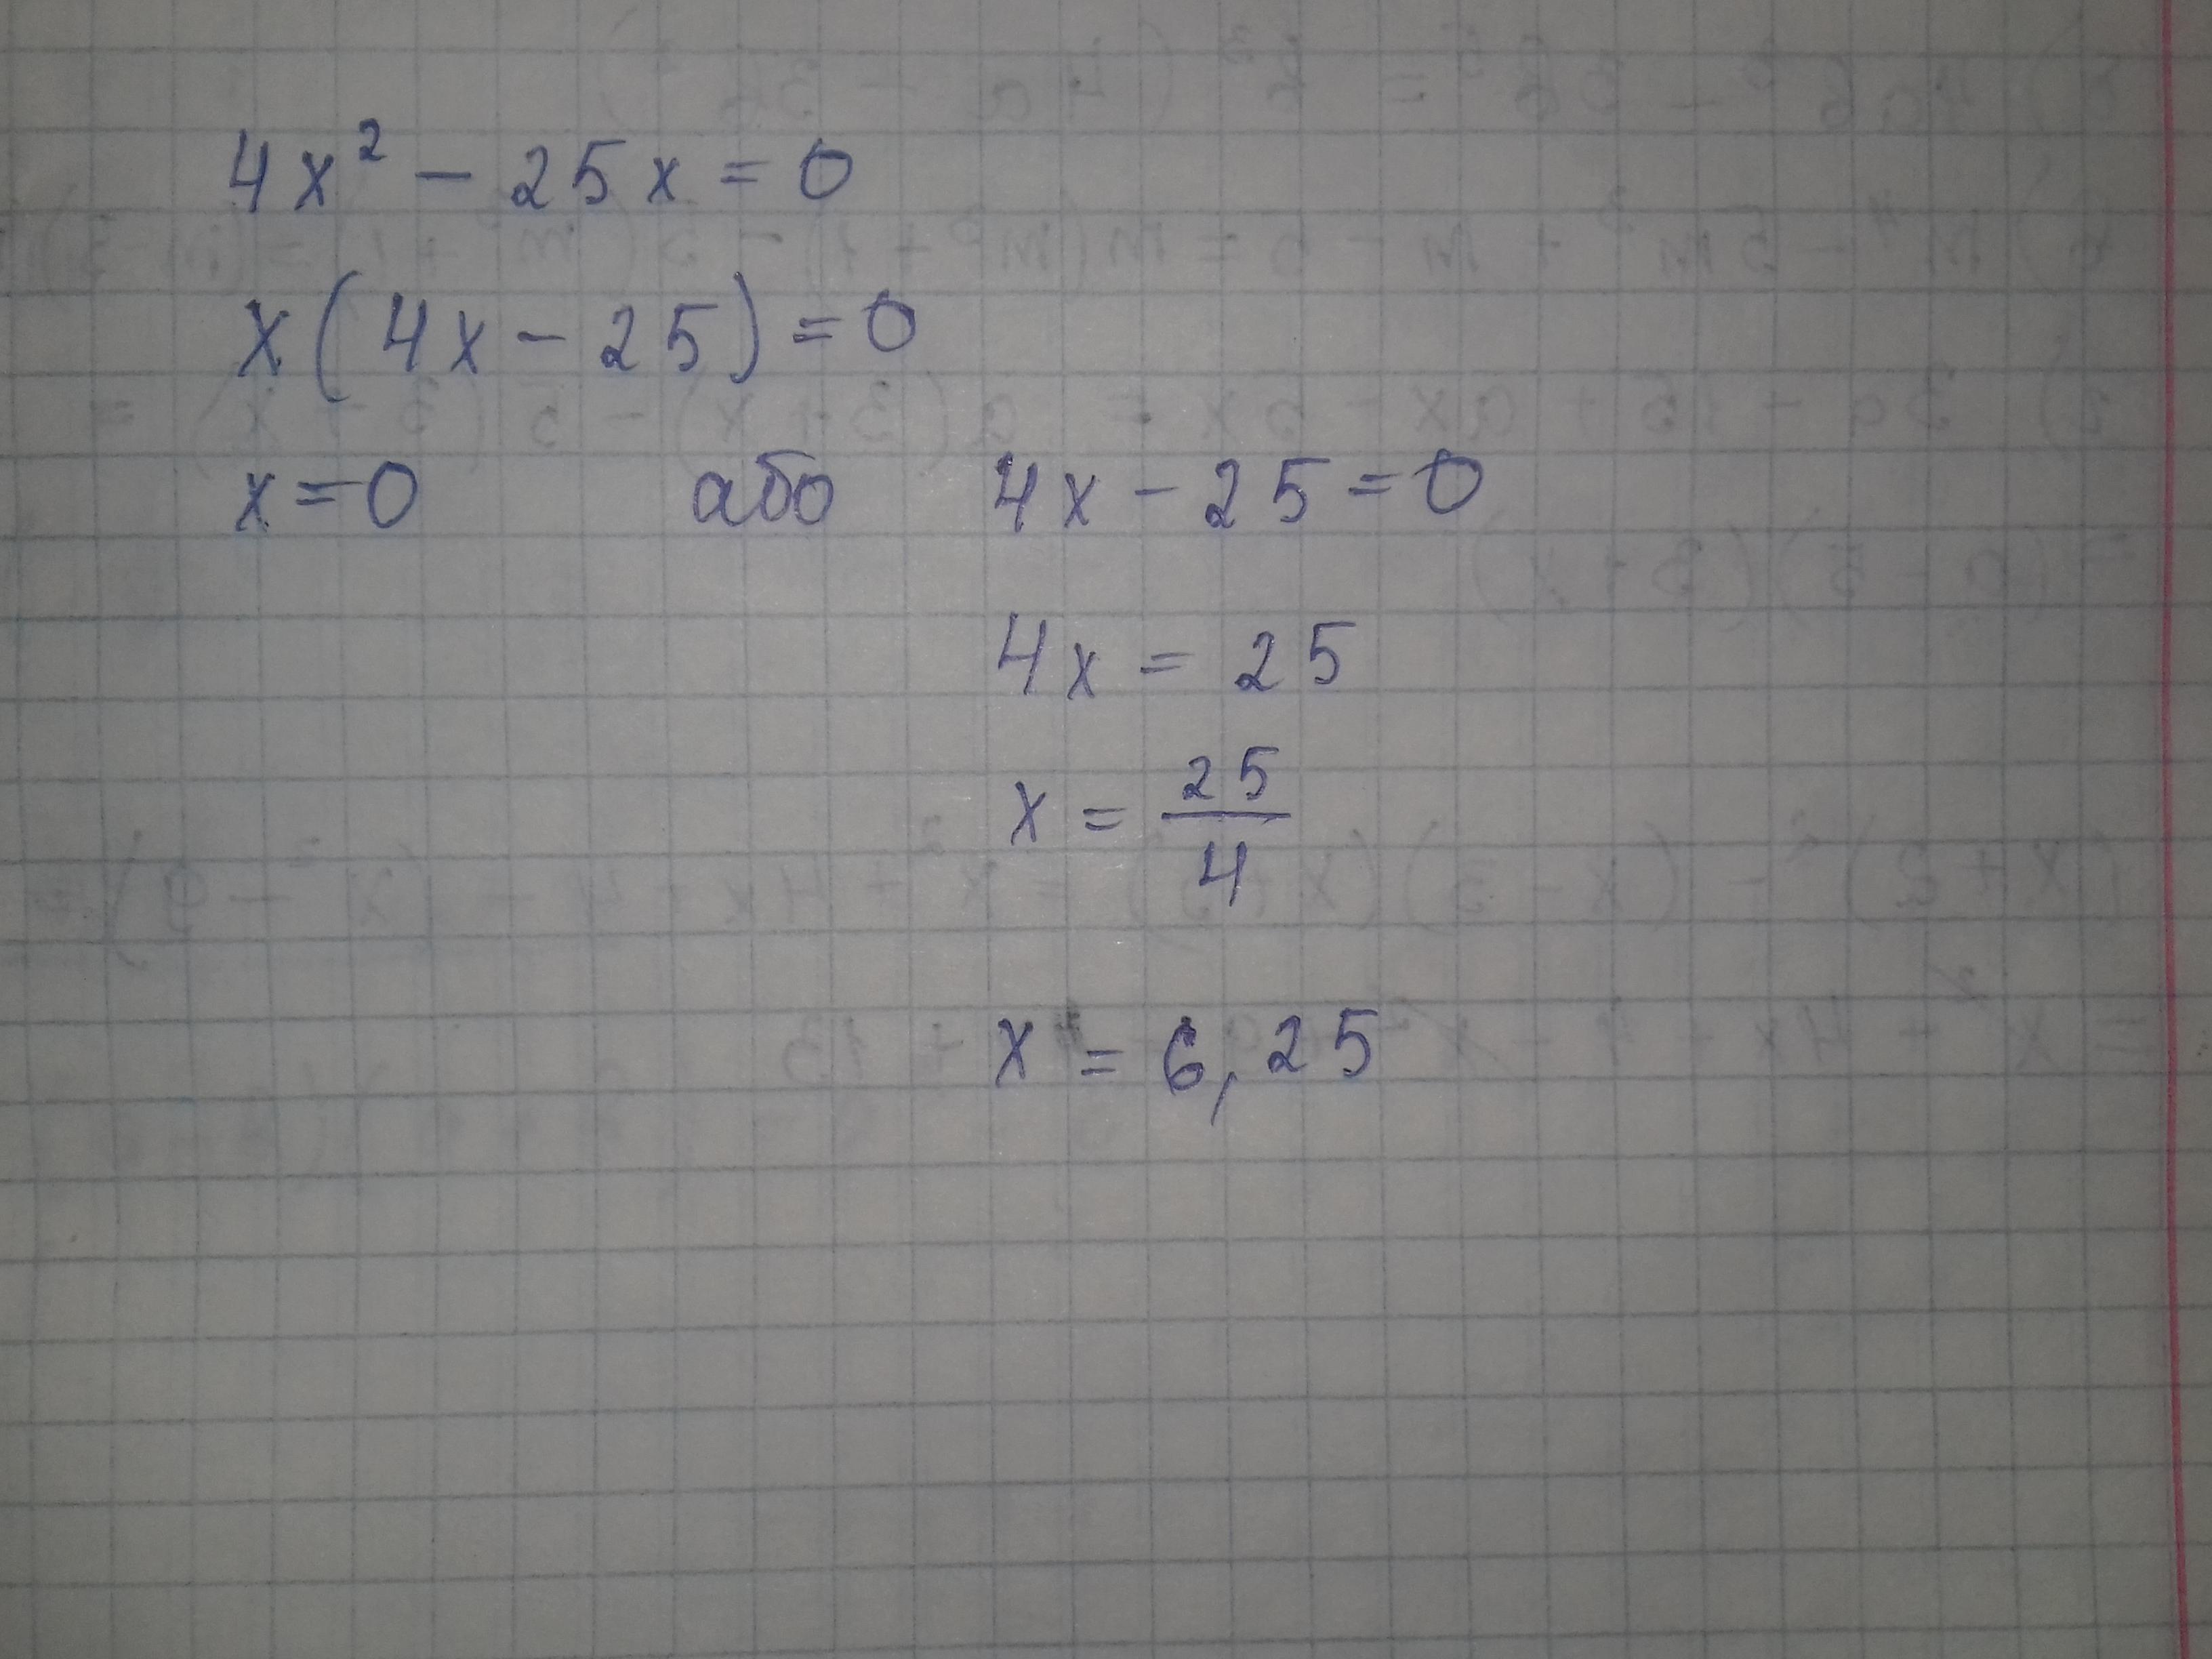 4x² - 25x = 0
x(4x - 25) = 0
x = 0 або 4x - 25 = 0
4x = 25
x = 25/4
x = 6,25